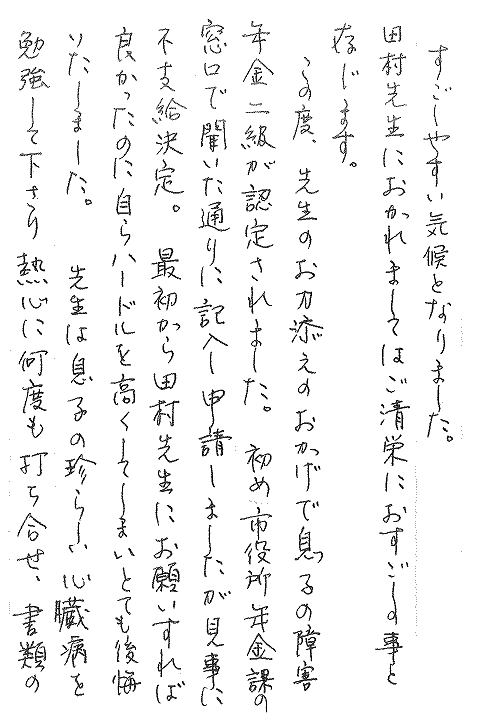 すごしやすい気候となりました。
田村先生におかれましてはご清栄におすごしの事と
存じます。
この度、先生のお力添えのおかげで息子の障害
年金二級が認定されました。初め市役所年金課の
窓口で聞いた通りに記入し申請しましたが見事に
不支給決定。最初から田村先生にお願いすれば
良かったのに自らハードルを高くしてしまいとても後悔
いたしました。先生は息子の珍らしい心臓病を
勉強して下さり熱心に何度も打ち合せ、書類の